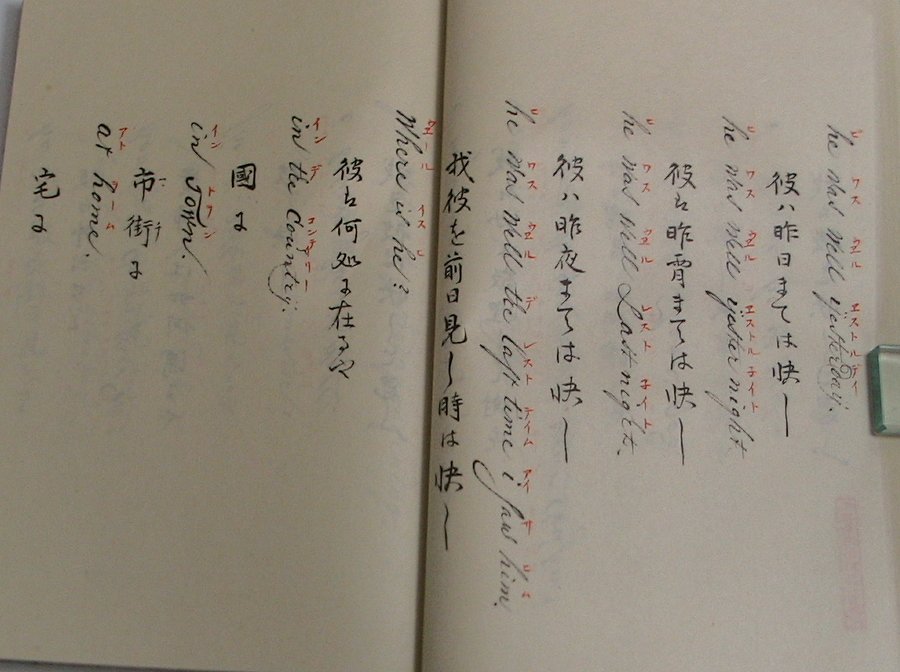 he was well yesterday.
彼ハ昨日まては快し
he was well yester night.
彼は昨宵まては快し
he was well Last night.
彼ハ昨夜まては快し
he was well the last time i saw him.
我彼を前日見し時は快し
Where is he?
彼は何処に在るや
in the Country.
國に
in Town.
市街に
at home.
宅に